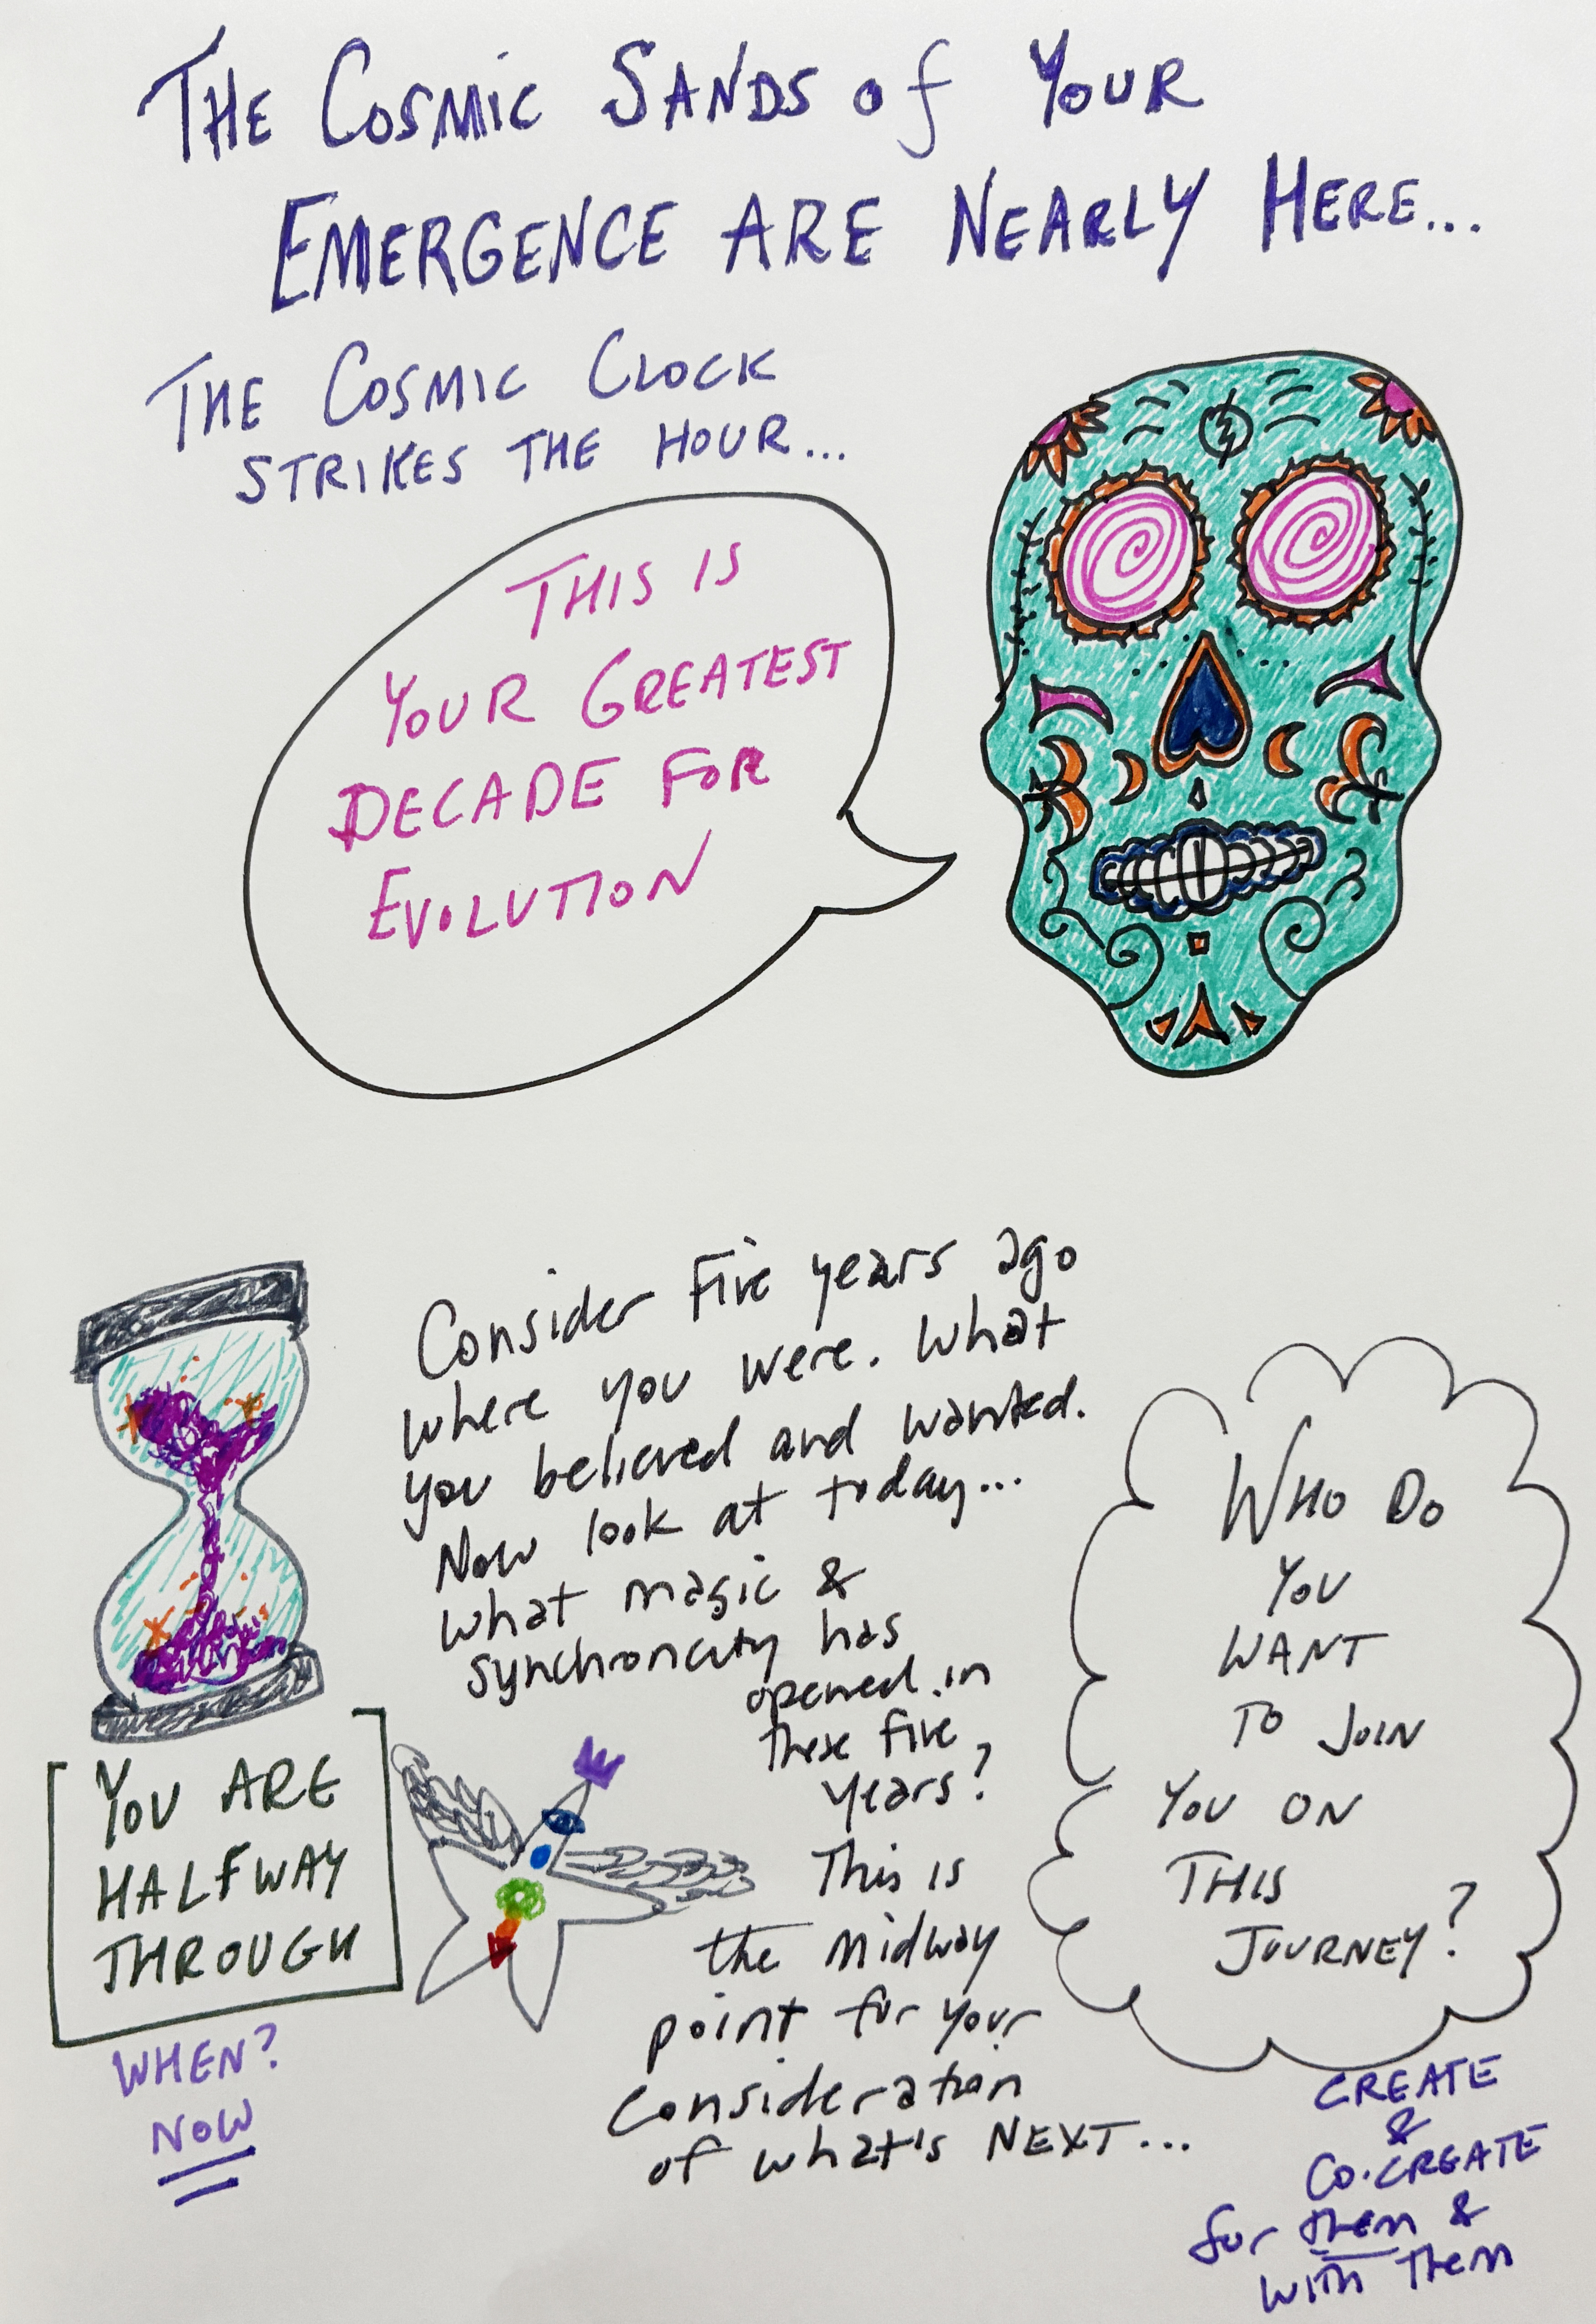 THE COSMIC SANDS of YOUR
EMERGENCE ARE NEARLY HERE...
THE COSMIC CLOCK
STRIKES THE HOUR...
THIS IS
YOUR GREATEST
DECADE FOR
EVOLUTION
Consider Five years ago
where you were. What
you believed and wanted.
Now look at today...
what magic &
synchroncity has
opened in
these five
years?
This is
the midway
point for your
consideration
of what's NEXT...
YOU ARE
HALFWAY
THROUGH
WHEN?
NOW
WHO DO
YOU
WANT
TO JOIN
YOU ON
THIS
JOURNEY?
CREATE
&
CO-CREATE
for them &
with them